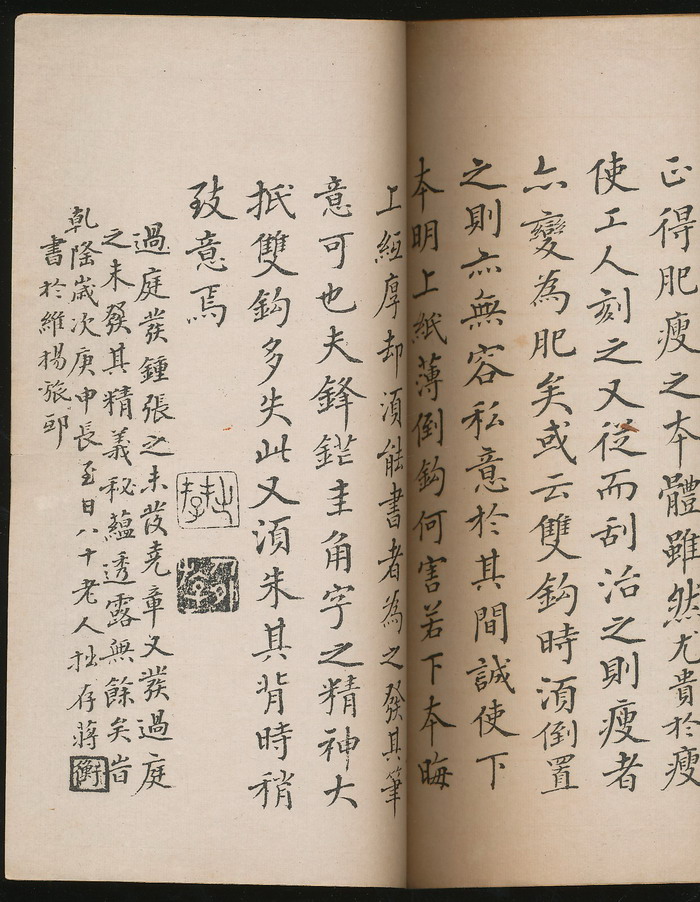 正得肥瘦之本體雖然尤貴於瘦
使工人刻之又從而刮治之則瘦者
亦變為肥矣或云雙鈎時湏倒置
之則亦無容私意於其間誠使下
本明上紙薄倒鈎何害若下本晦
上紙厚却湏能書者為之發其筆
意可也夫鋒鋩圭角字之精神大
抵雙鈎多失此又湏朱其背時稍
致意焉
過庭發鍾張之未發堯章又發過庭
之未發其精義秘蘊透露無餘矣旹
乾隆歲次庚申長至日八十老人拙存蔣
衡
書於維揚旅邸